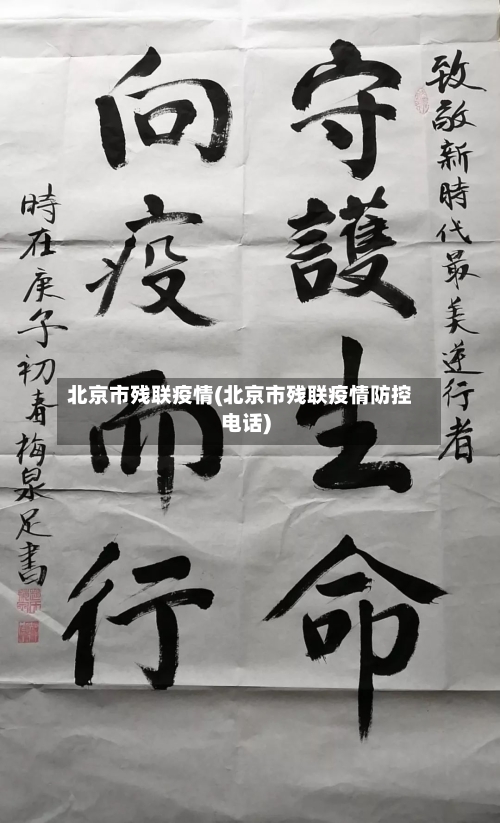 致敬新時代最美逆行者
守護生命
向疫而行
時在庚子初春梅泉足書
北京市残联疫情(北京市残联疫情防控
电话)